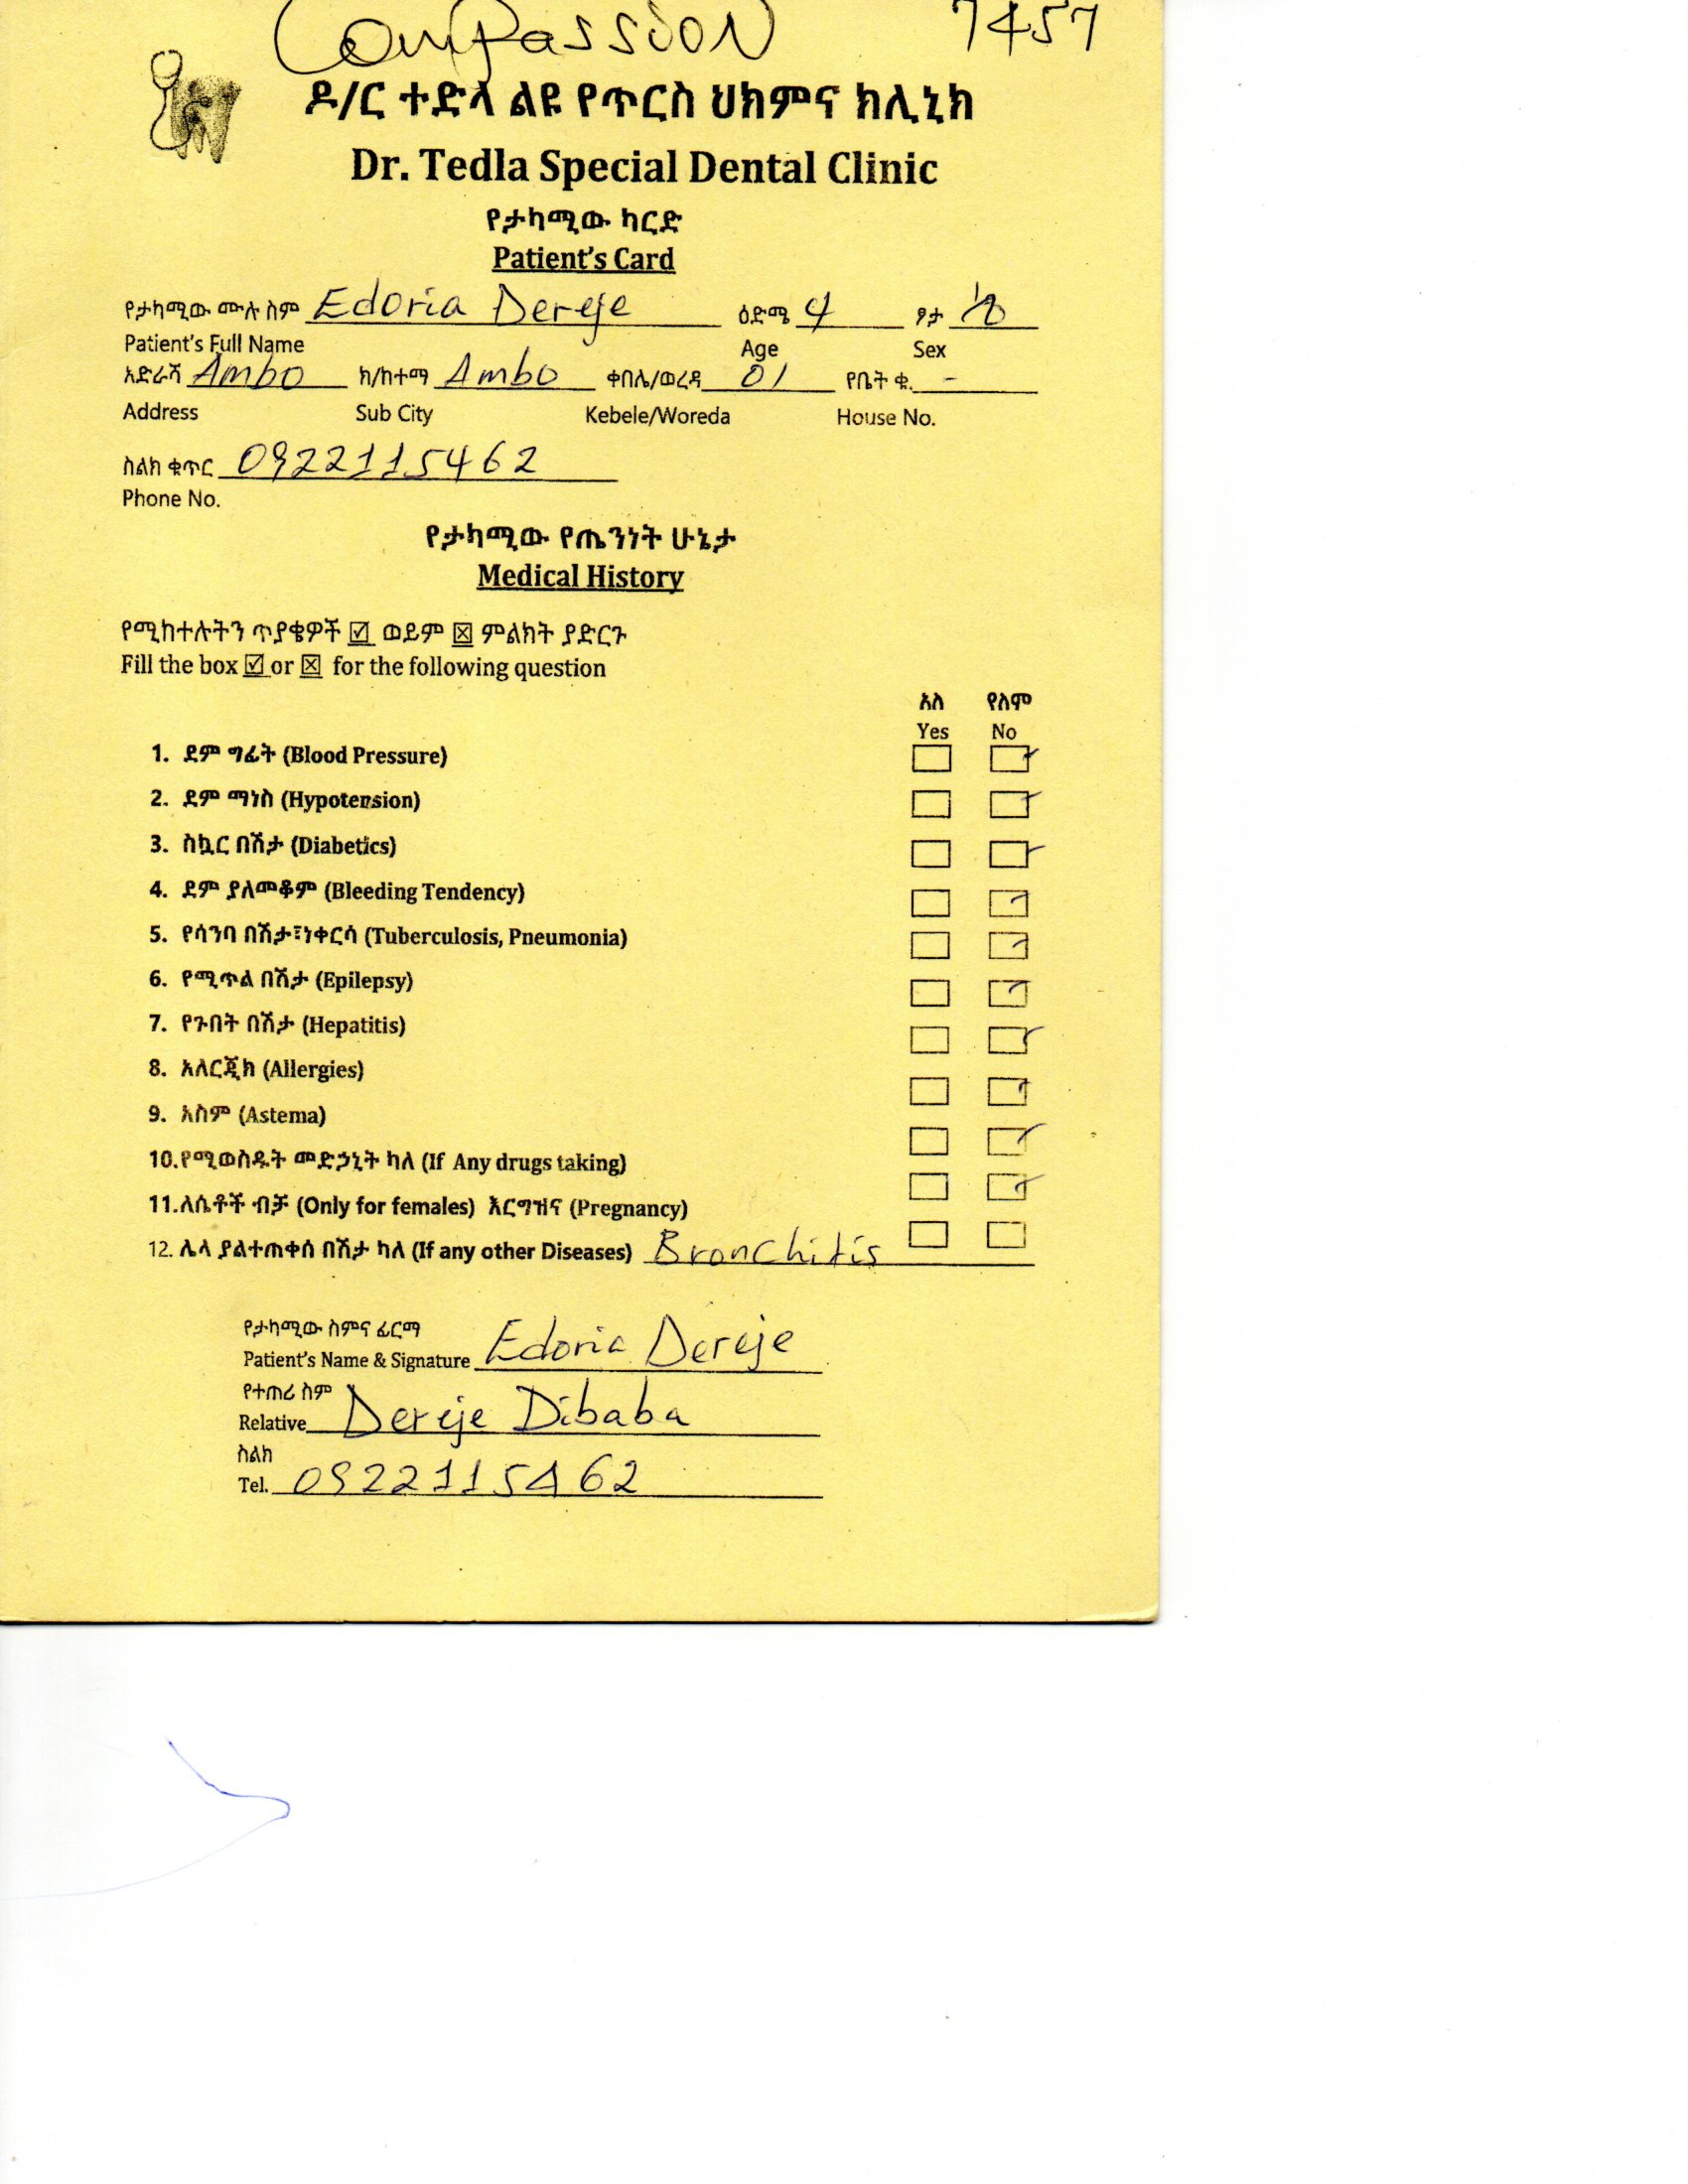 Compassion 7457
ዶ/ር ተድላ ልዩ የጥርስ ህክምና ክሊኒክ
Dr. Tedla Special Dental Clinic
የታካሚው ካርድ
Patient's Card
የታካሚው ሙሉ ስም Edoria Dereje ዕድሜ 4 ፆታ
Patient's Full Name Age Sex
አድራሻ Ambo ክ/ከተማ Ambo ቀበሌ/ወረዳ 01 የቤት ቁ. -
Address Sub City Kebele/Woreda House No.
ስልክ ቁጥር 0922115462
Phone No.
የታካሚው የጤንነት ሁኔታ
Medical History
የሚከተሉትን ጥያቄዎች ☑ ወይም ☒ ምልክት ያድርጉ
Fill the box ☑ or ☒ for the following question
አለ የለም
Yes No
1. ደም ግፊት (Blood Pressure)
2. ደም ማነስ (Hypotension)
3. ስኳር በሽታ (Diabetics)
4. ደም ያለመቆም (Bleeding Tendency)
5. የሳንባ በሽታ፣ነቀርሳ (Tuberculosis, Pneumonia)
6. የሚጥል በሽታ (Epilepsy)
7. የጉበት በሽታ (Hepatitis)
8. አለርጂክ (Allergies)
9. አስም (Astema)
10.የሚወስዱት መድኃኒት ካለ (If Any drugs taking)
11.ለሴቶች ብቻ (Only for females) እርግዝና (Pregnancy)
12. ሌላ ያልተጠቀሰ በሽታ ካለ (If any other Diseases) Bronchitis
የታካሚው ስምና ፊርማ
Patient's Name & Signature Edoria Dereje
የተጠሪ ስም
Relative Dereje Dibaba
ስልክ
Tel. 0922115462